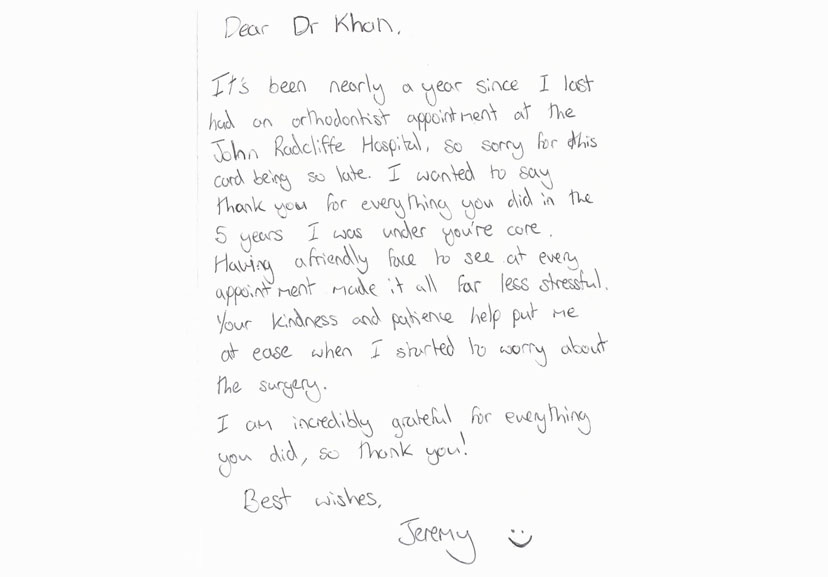 Dear Dr Khan,
It's been nearly a year since I last
had an orthodontist appointment at the
John Radcliffe Hospital, so sorry for this
card being so late. I wanted to say
thank you for everything you did in the
5 years I was under you're care.
Having a friendly face to see at every
appointment made it all far less stressful.
Your kindness and patience help put me
at ease when I started to worry about
the surgery.
I am incredibly grateful for everything
you did, so thank you!
Best wishes,
Jeremy